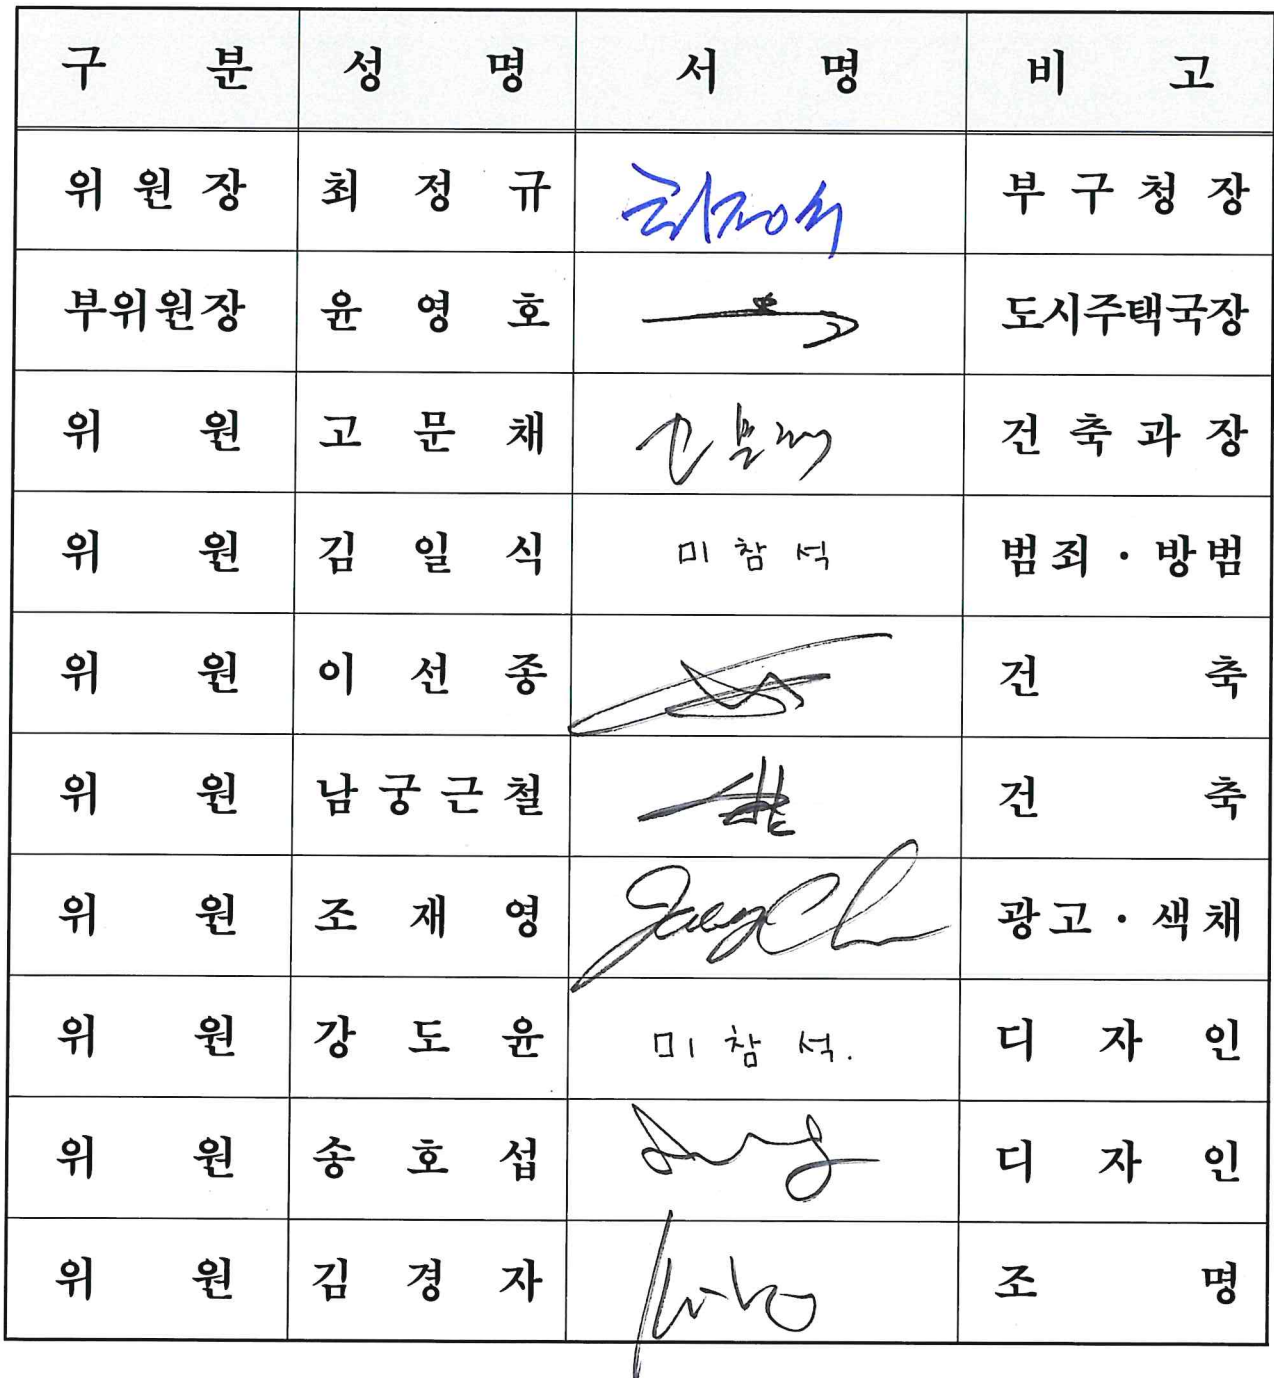 구 분 성 명 서 명 비 고
위 원 장 최 정 규 최정규 부 구 청 장
부위원장 윤 영 호 도시주택국장
위 원 고 문 채 고문채 건 축 과 장
위 원 김 일 식 미 참 석 범 죄 · 방 범
위 원 이 선 종 건 축
위 원 남 궁 근 철 건 축
위 원 조 재 영 광 고 · 색 채
위 원 강 도 윤 미 참 석. 디 자 인
위 원 송 호 섭 디 자 인
위 원 김 경 자 조 명